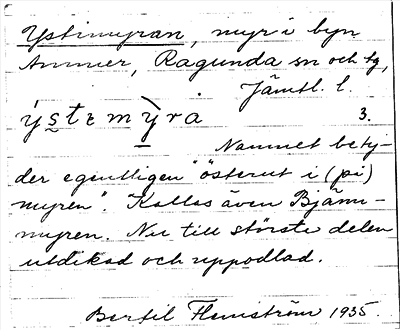 Ystimyran, myr i byn
Ammer, Ragunda sn och tg,
Jämtl. l.
ýstɛmỳra 3.
Namnet bety-
der egentligen "österut i (på)
myren". Kallas även Bjänn-
myren. Nu till största delen
utdikad och uppodlad.
Bertil Flemström 1935.